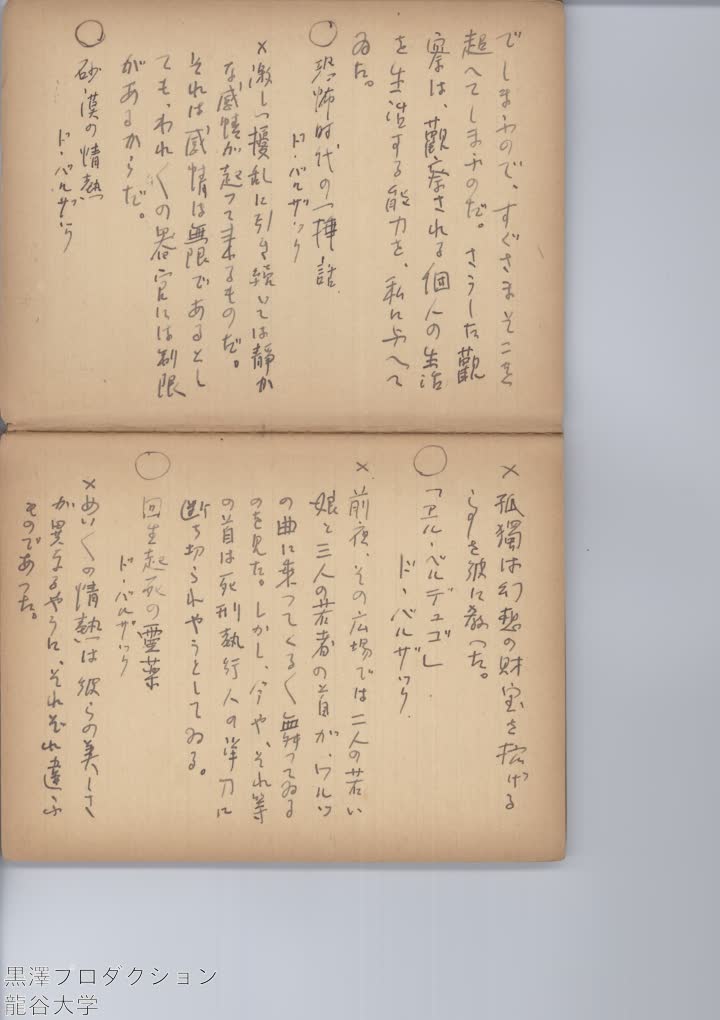 でしまふので、すぐさまそこを
超へてしまふのだ。さうした觀
察は、觀察される個人の生活
を生活する能力を、私に与へて
ゐた。
○
恐怖時代の一揷話
ド・バルザック
×激しい擾乱に引き続いては静か
な感情が起って来るものだ。
それは感情は無限であるとし
ても、われ〱の器官には制限
があるからだ。
○
砂漠の情熱
ド・バルザック
×孤獨は幻想の財宝を拡げる
らすを彼に教った。
○
「エル・ベルデュゴ」
ド・バルザック
×前夜、その広場では二人の若い
娘と三人の若者の首が、ワルツ
の曲に乗ってくる〱舞ってゐる
のを見た。しかし、今や、それ等
の首は死刑執行人の洋刀に
断ち切られやうとしてゐる。
○
回生起死の靈薬
ド・バルザック
×めい〱の情熱は彼らの美しさ
が異なるやうに、それぞれ違ふ
ものであった。
黒澤プロダクション
龍谷大学